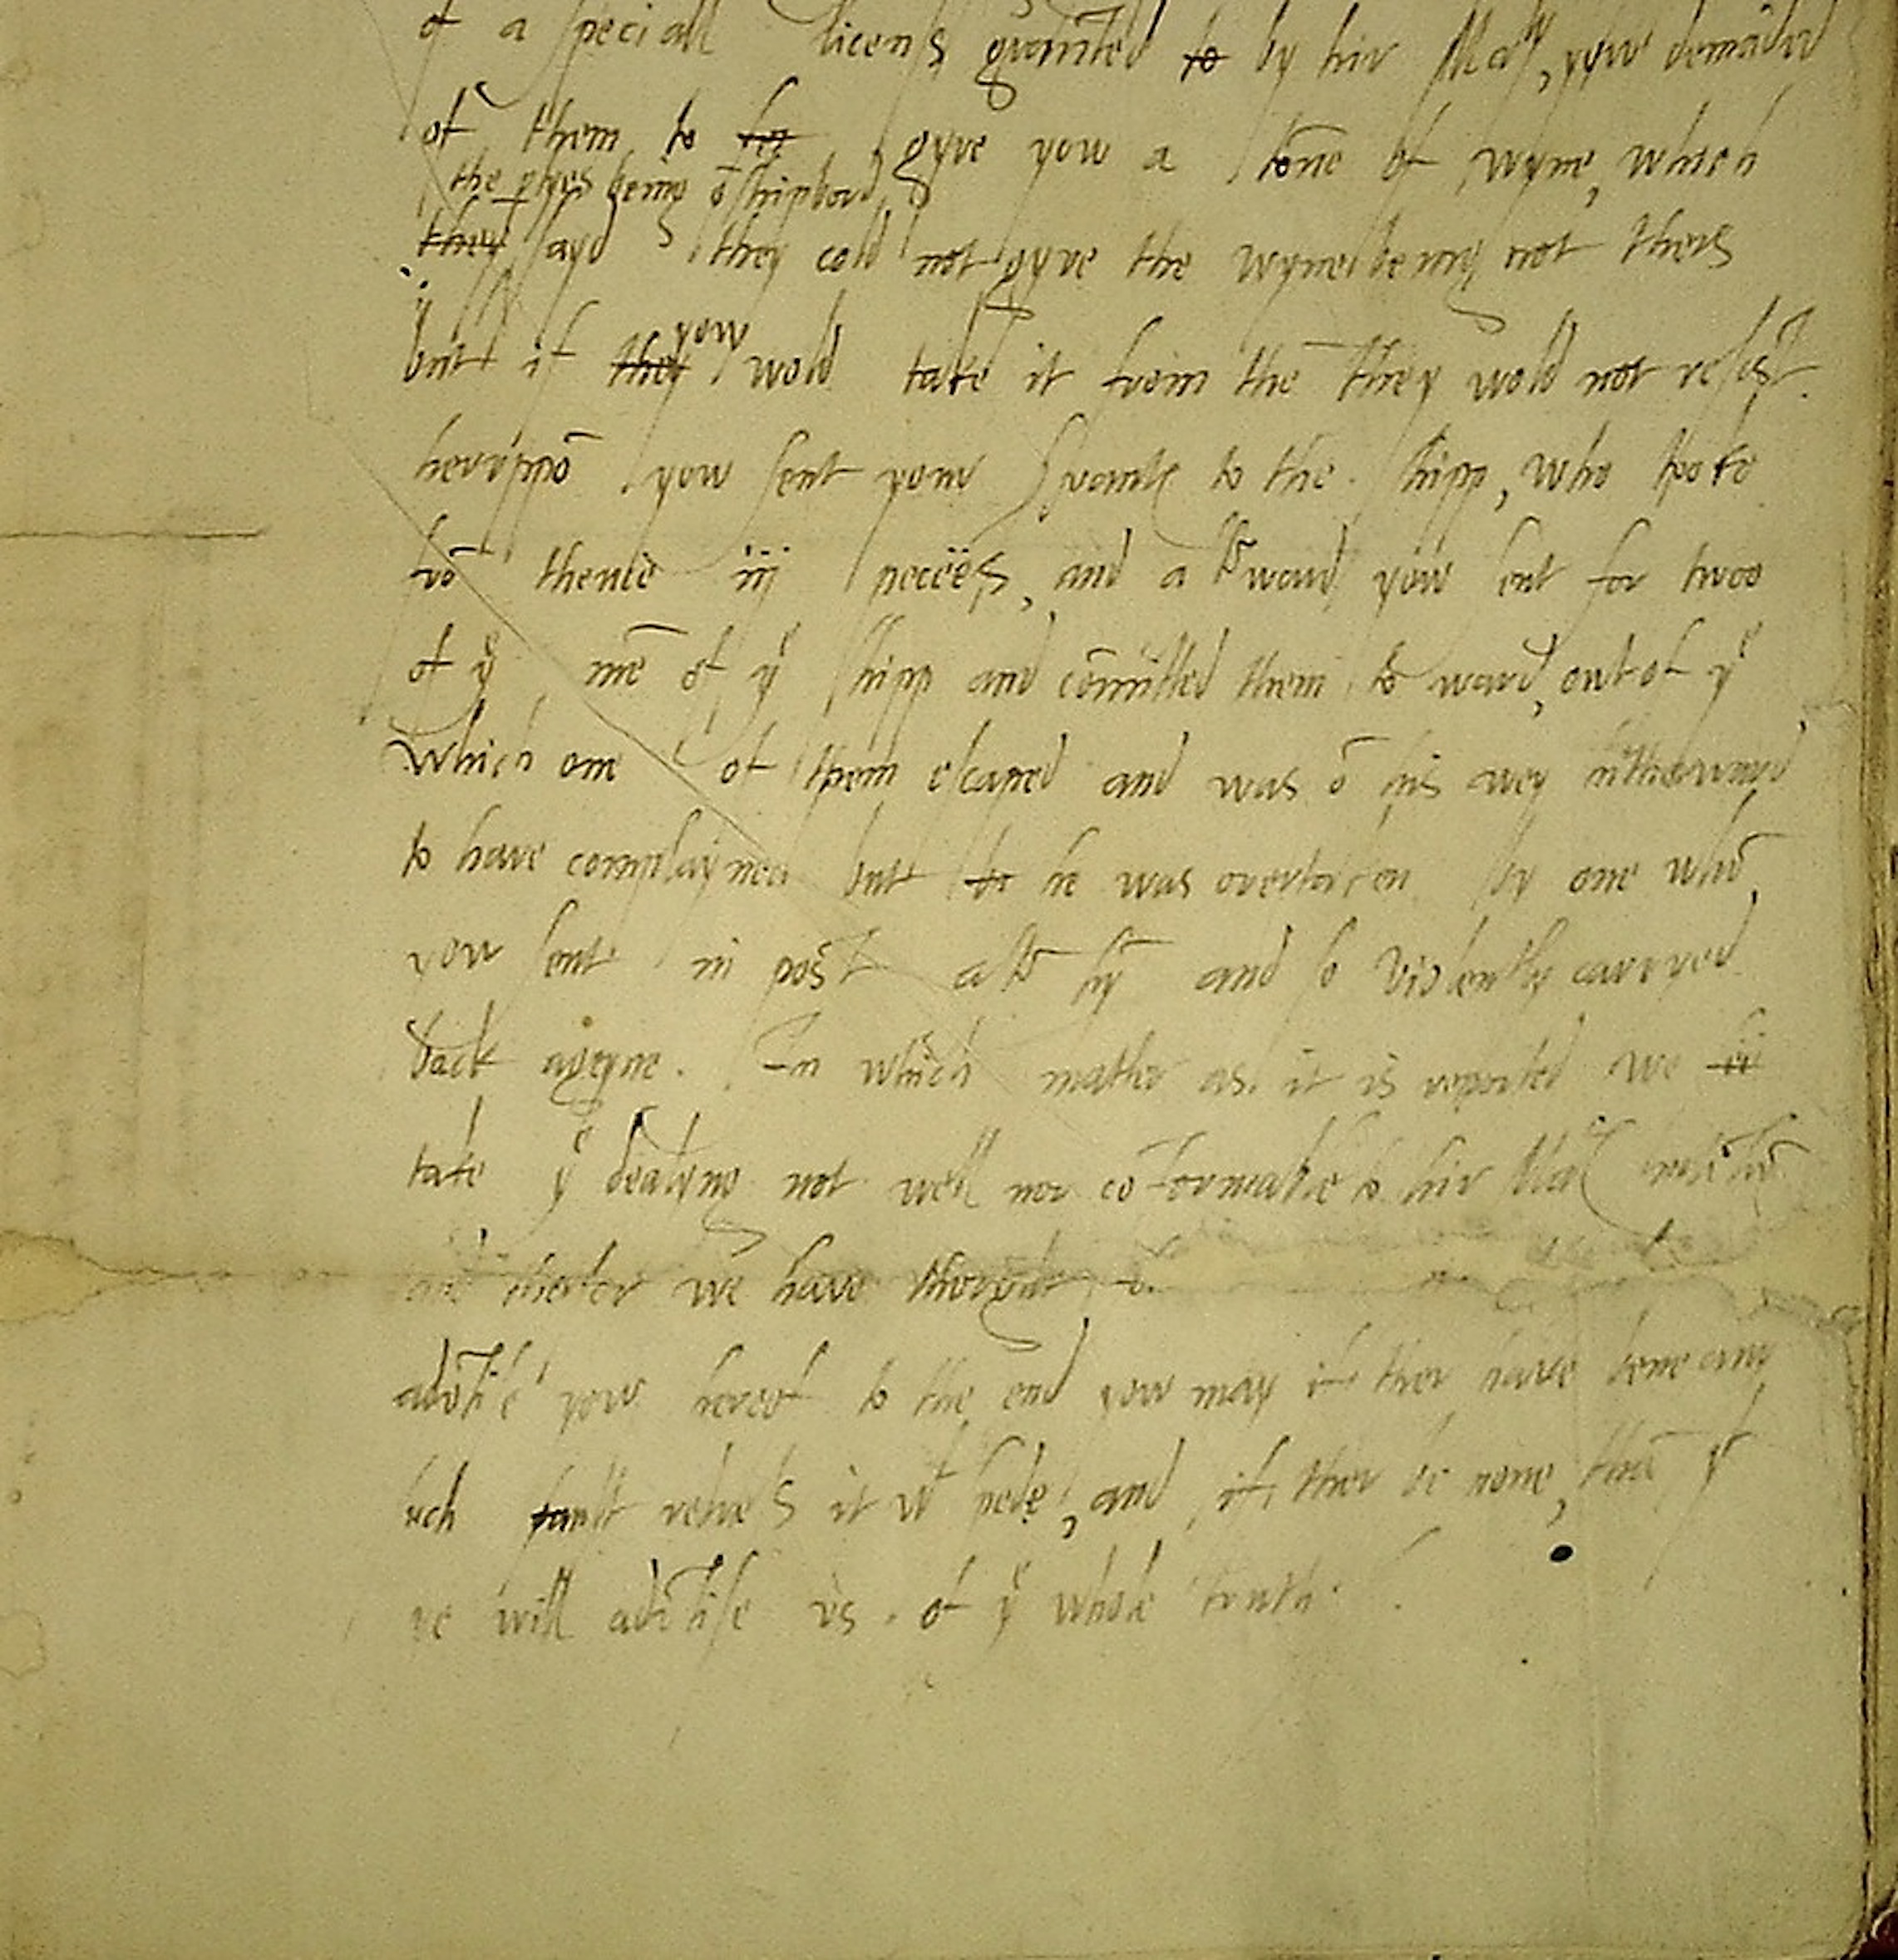 of a speciall licens graunted to by hir Maty, yow demaūded
of them to hy gyve yow a tōne of wyne, which
the ptyes being ō shipbord
they sayd they cold not gyve the wyne being not thers
yow
but if they wold take it from thē they wold not resist.
heruppō yow sent your Svants to the shipp, who tooke
frō thence iij peeces, and afterward yow sent for twoo
of ye mē of ye shipp and cōmitted them to ward, out of ye
which one of them escaped and was ō his wey hitherward
to have complayned but to he was overtaken by one whō
yow sent in post after hȳ and so violently caryed
back ageyne. In which matter as it is reported we
take ye dealyng not well nor cōformable to hir Mats
and therfor we have thought
advtise yow herof to the end yow may if ther have bene any
such fault redres it wt spede, and if ther be none, thē yt
ye will advtise vs of ye whole truth.